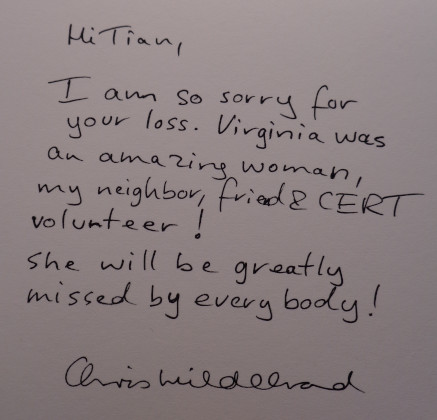 Hi Tian,
I am so sorry for
your loss. Virginia was
an amazing woman,
my neighbor, fried & CERT
volunteer!
She will be greatly
missed by everybody!
Chris Hildebrand